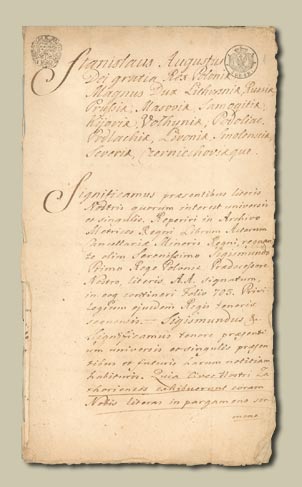 Stanislaus Augustus
Dei gratia Rex Poloniæ
Magnus Dux Lithvaniæ Russiæ
Prussiæ, Masoviæ, Samogitiæ
Kijoviæ, Volhyniæ, Podoliæ,
Podlachiæ, Livoniæ, Smolensciæ
Severiæ, Czerniechoviæque.
Significamus præsentibus literis
Nostris quorum interest universis
et singulis, Reperiri in Archivo
Metrices Regni Librum Actorum
Cancellariæ Minoris Regni, regnante
olim Serenissimo Sigismundo
Primo Rege Poloniæ Prædecessore
Nostro, Literis A.A. signatum
in eoq contineri Folio 703.
Regni tenoris
sequentis Sigismundus &
Significamus tenore præsentium
universis et singulis præsentibus
et futuris harum notitiam
habituris. Quia Cives Nostri
exhibuerunt coram
Nobis literas in pargameno